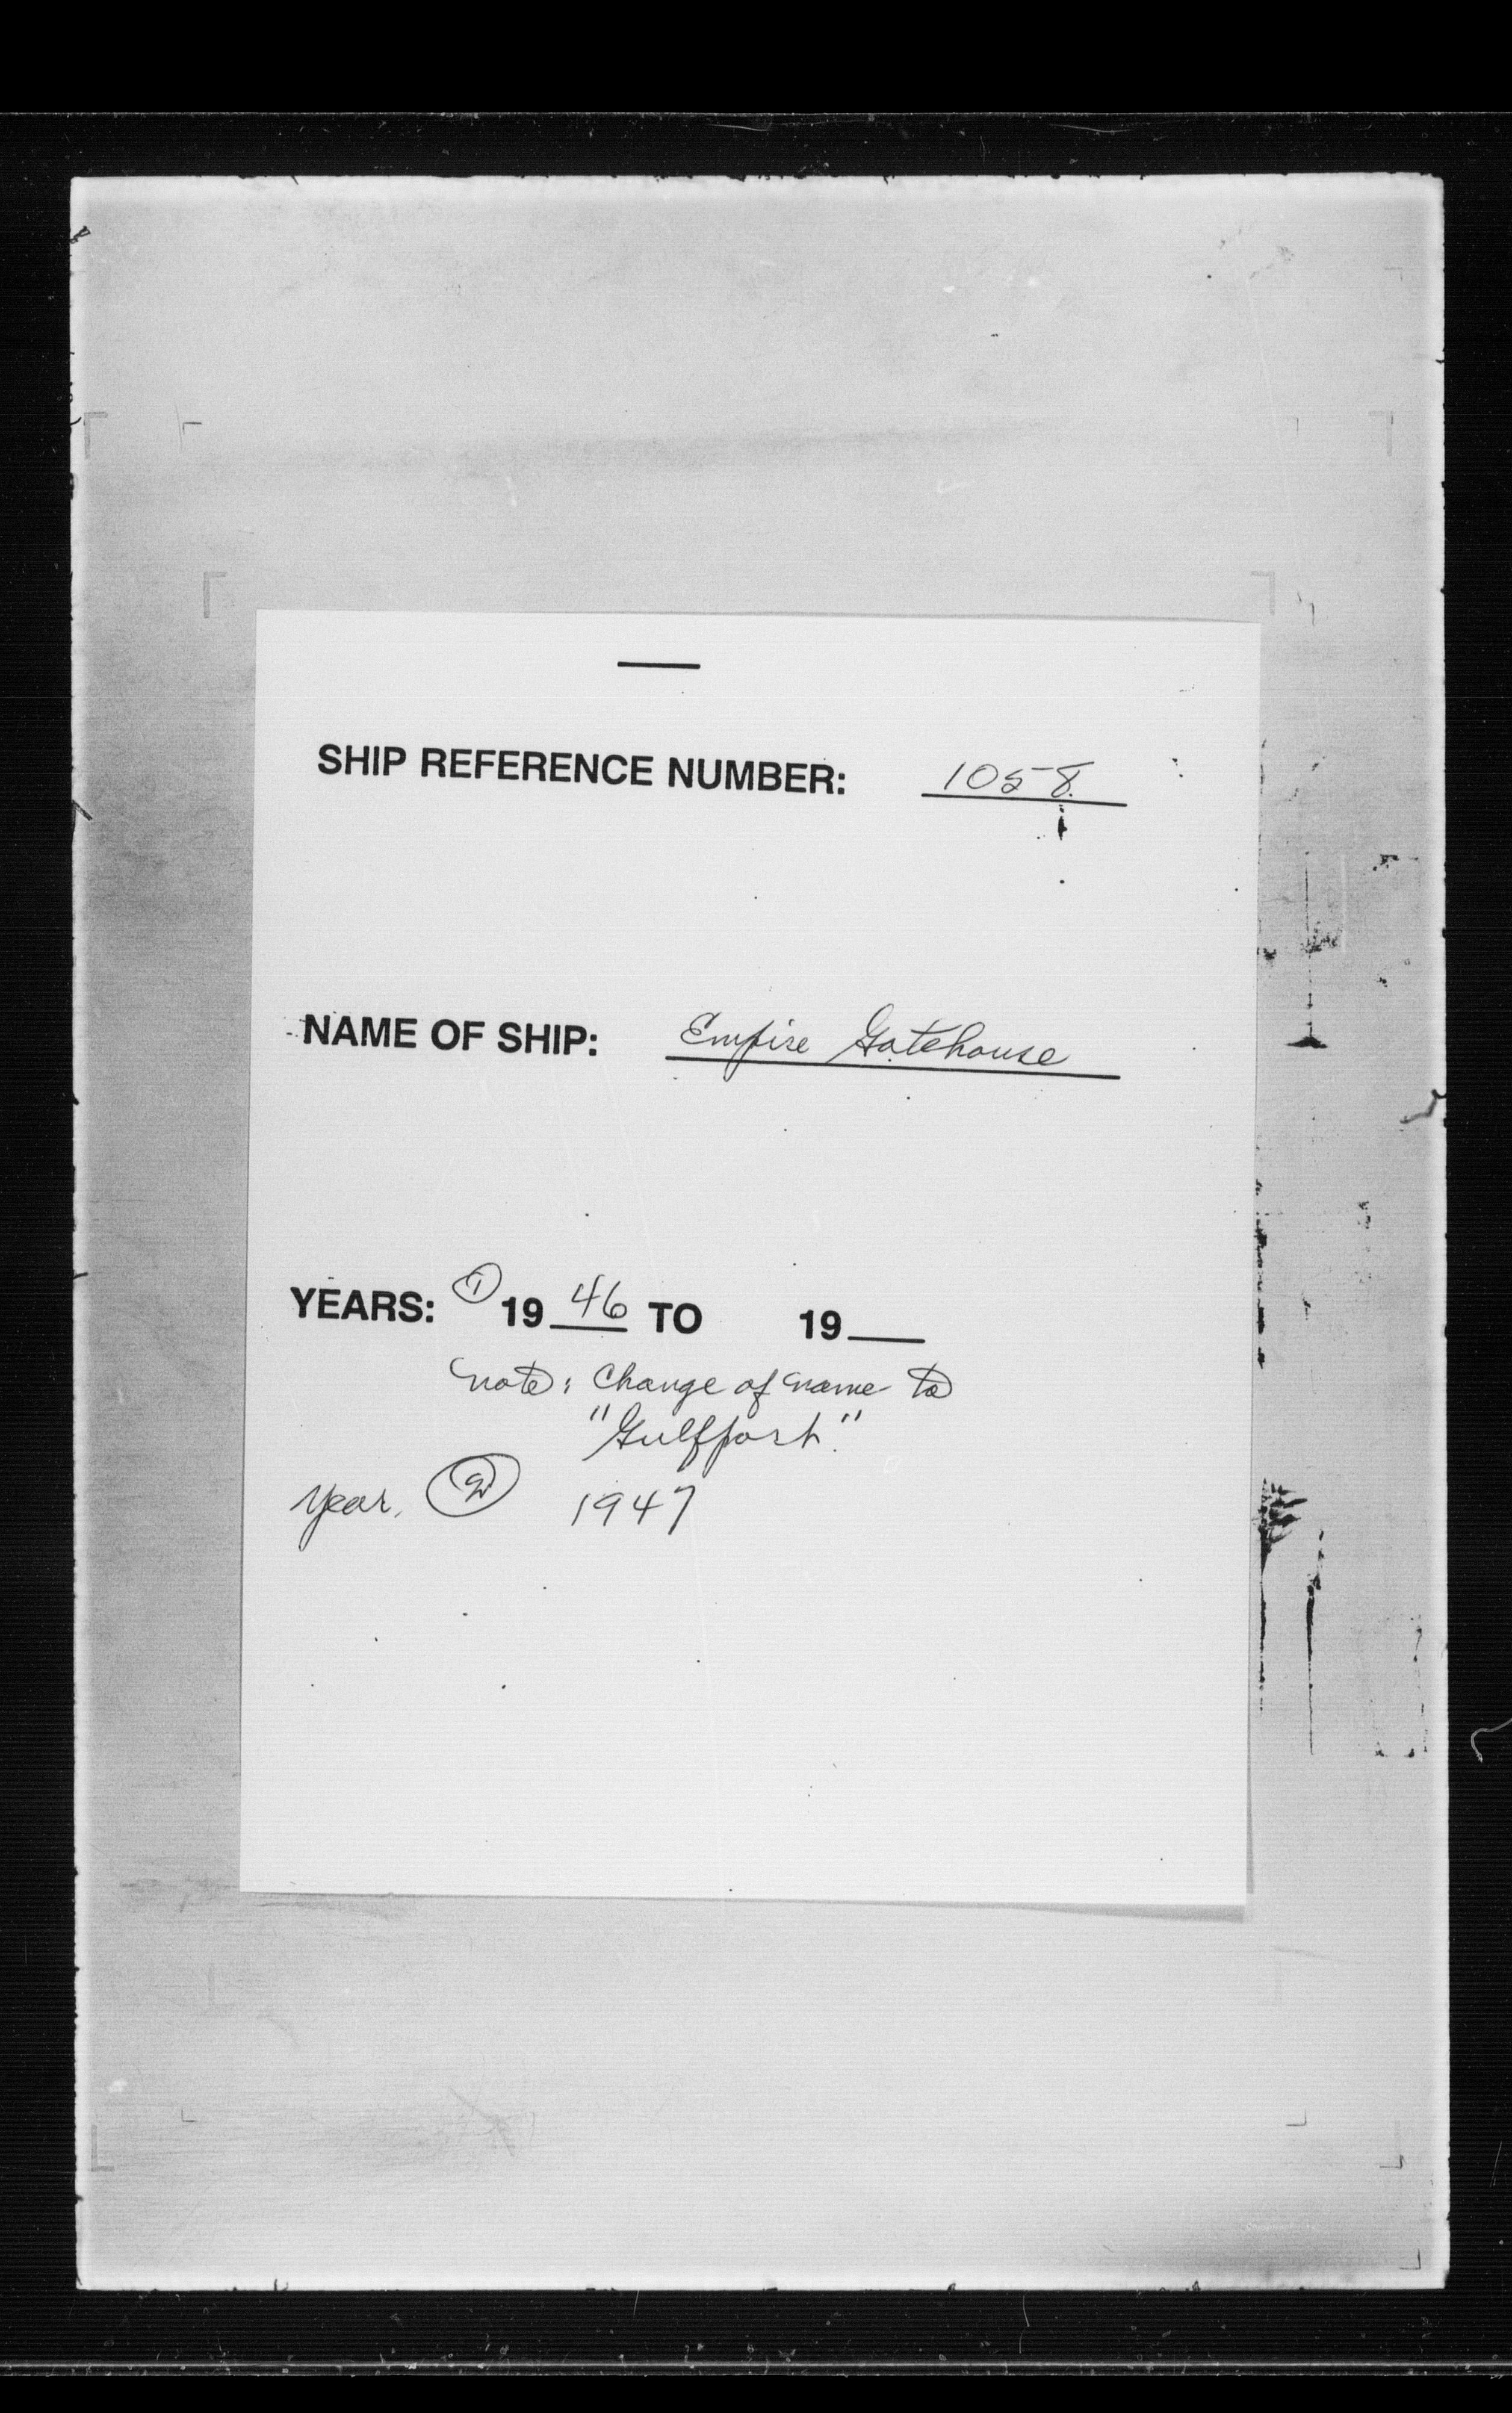 SHIP REFERENCE NUMBER: 1058
NAME OF SHIP: Empire Gatehouse
YEARS: ① 19 46 TO 19__
Note: Change of name to
"Gulfport"
Year, ② 1947